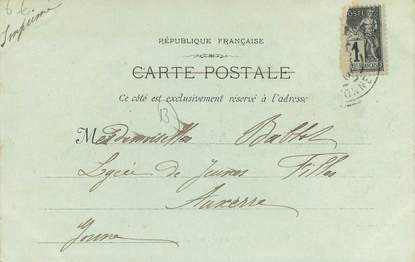 6 €
Imprimé
RÉPUBLIQUE FRANÇAISE
CARTE POSTALE
Ce côté est exclusivement réservé à l'adresse
B
Mesdemoiselles
Lycée de Jeunes Filles
Auxerre
Yonne
1